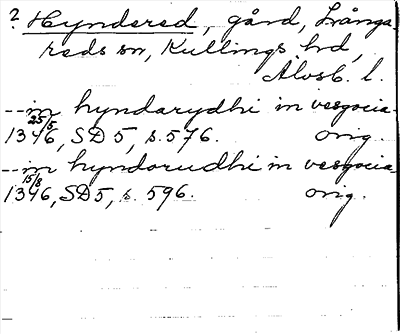 ? Hyndered, gård, Långa-
reds sn, Kullings hd,
Älvsb. l.
-- in hyndarydhi in vesgocia
25/5 1346, SD 5, s. 576. orig.
-- in hyndorudhi in vesgocia
15/8 1346, SD 5, s. 596. orig.